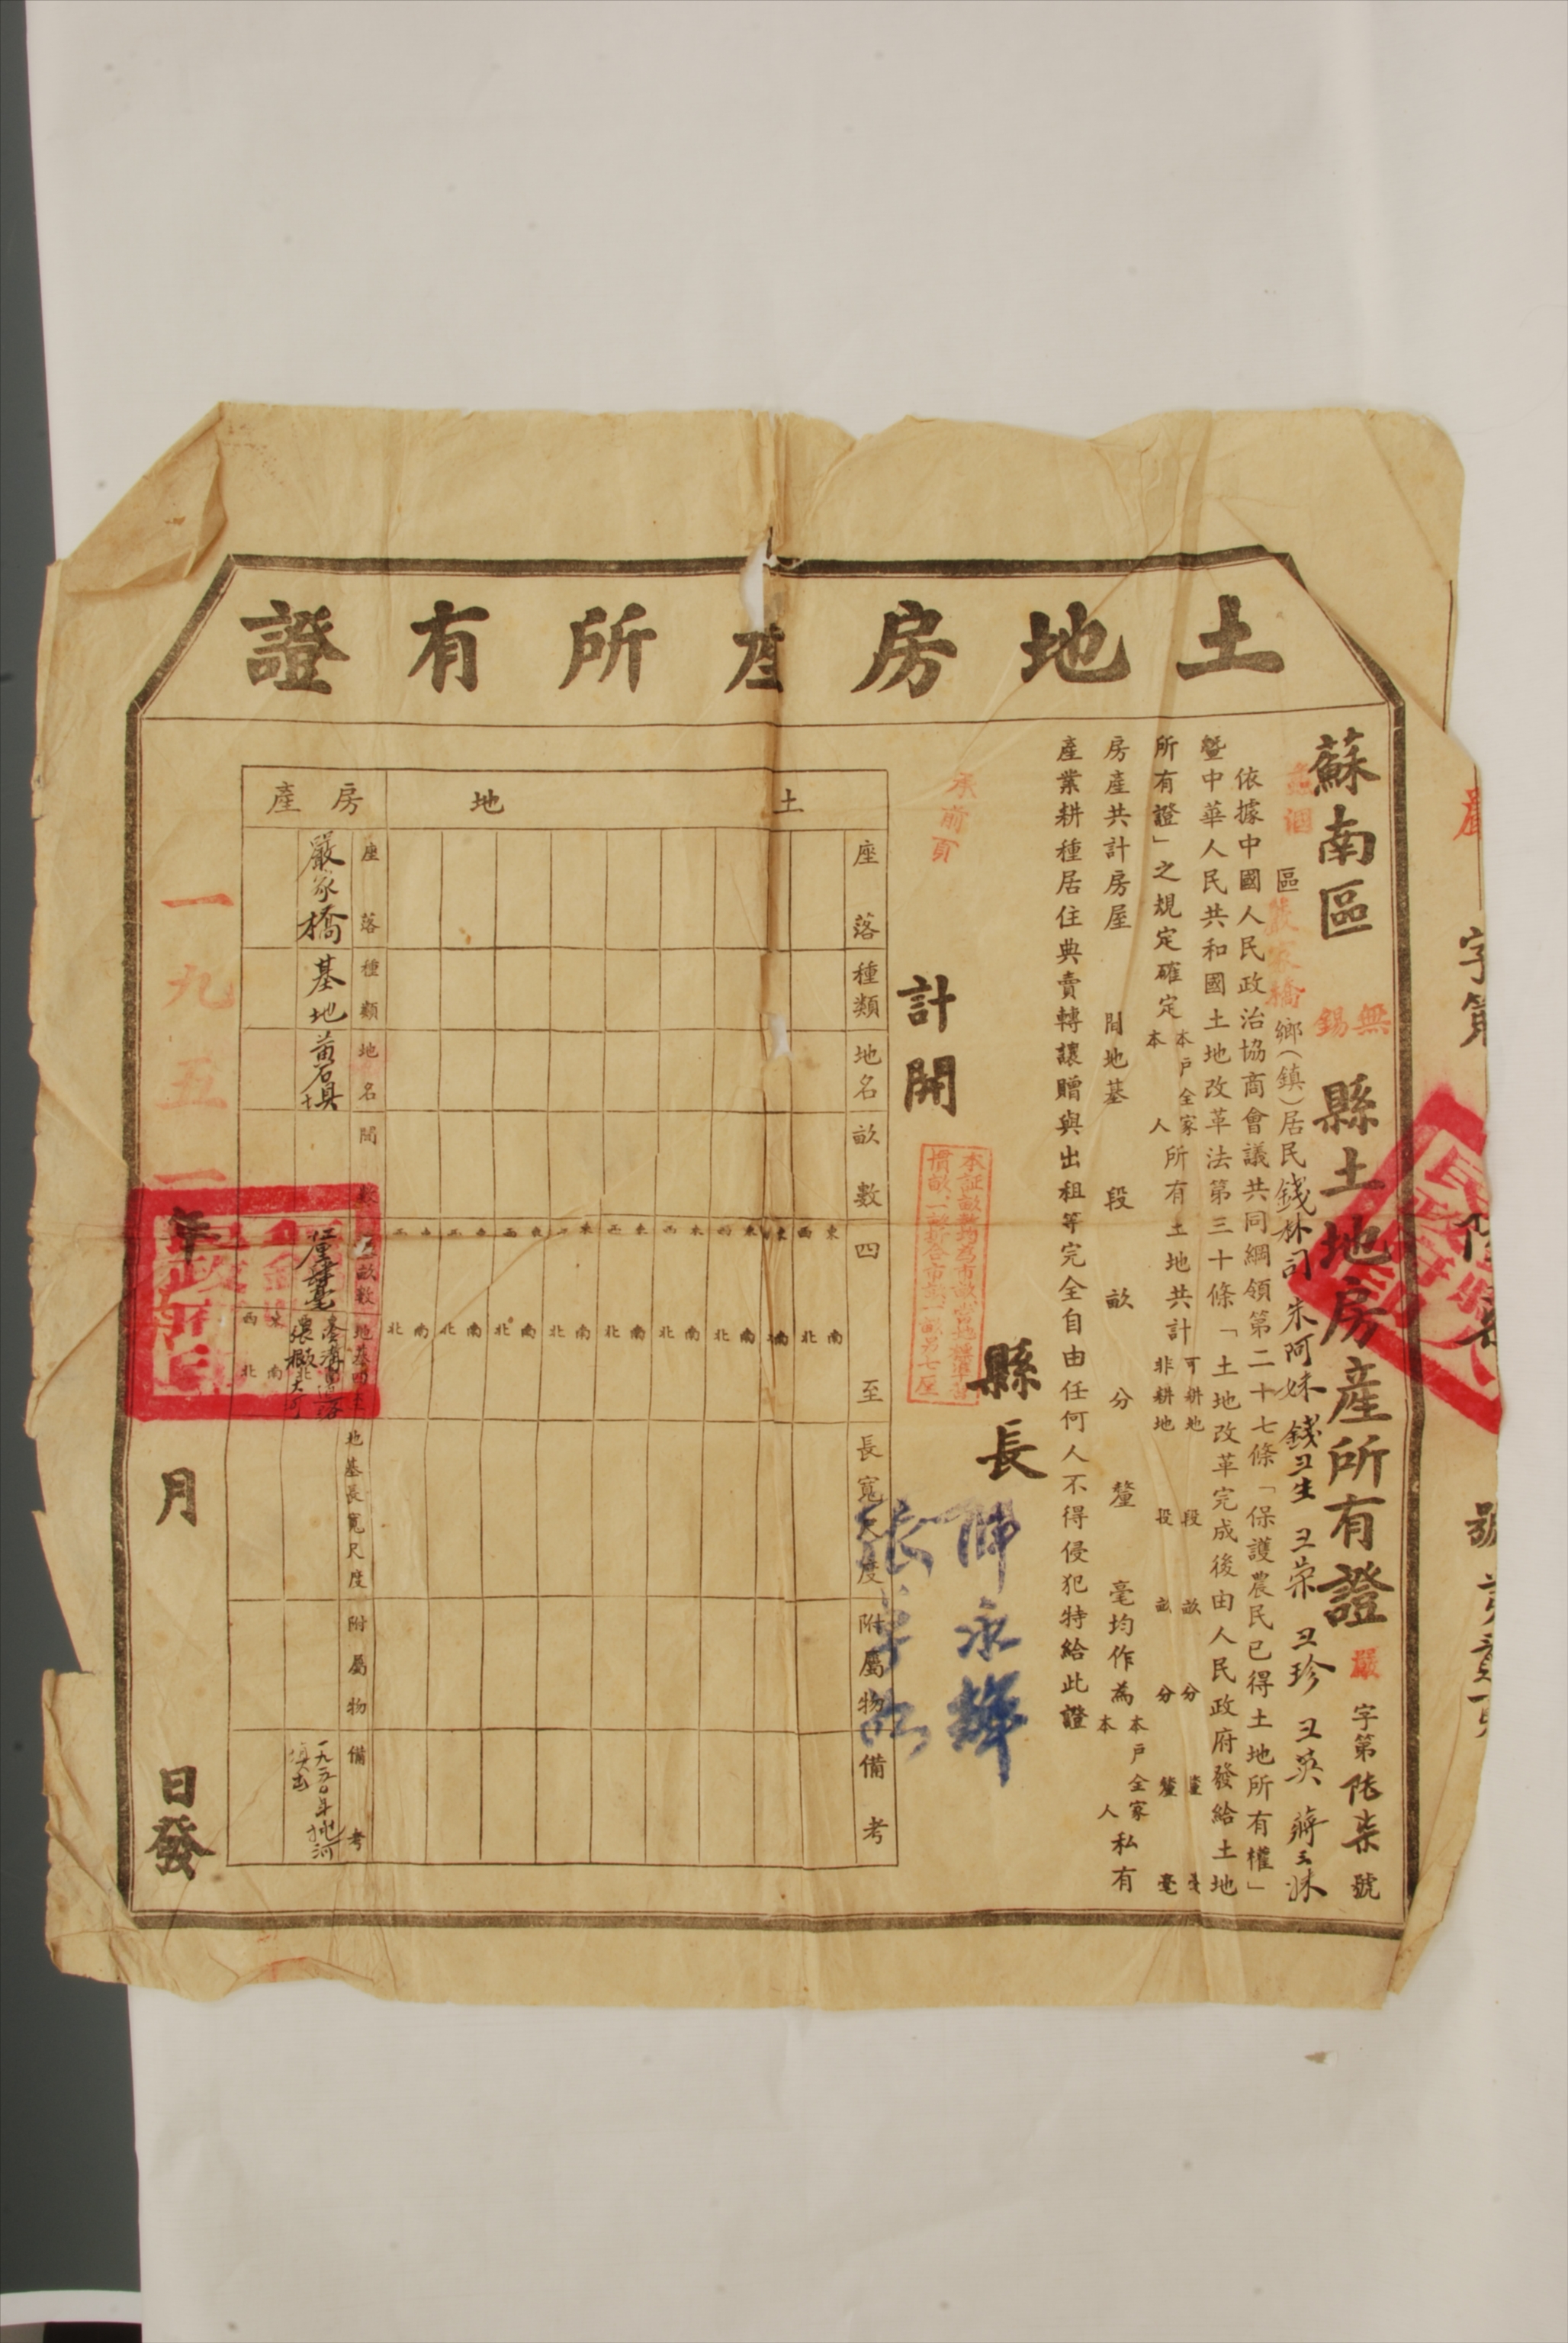 土地房產所有證
字第
號
蘇南區無錫縣土地房產所有證
嚴字第陸柒號
區嚴家橋鄉(鎮)居民錢林司 朱阿妹 錢卫生 卫荣 卫珍 卫英 蔣三妹
依據中國人民政治協商會議共同綱領第二十七條「保護農民已得土地所有權」
暨中華人民共和國土地改革法第三十條「土地改革完成後由人民政府發給土地
所有證」之規定確定本戶全家本人所有土地共計可耕地 段 畝 分 釐 毫非耕地 段 畝 分 釐 毫
房產共計房屋 間地基 段 畝 分 釐 毫均作為本戶全家本人私有
產業耕種居住典賣轉讓贈與出租等完全自由任何人不得侵犯特給此證
承前頁
縣長
永輝
計開
土地
座落
種類
地名
畝數
四至
長寬尺度
附屬物
備考
東 西 南 北
東 西 南 北
東 西 南 北
東 西 南 北
東 西 南 北
東 西 南 北
東 西 南 北
東 西 南 北
房產
座落
種類
地名
間
畝數
地基四至
地基長寬尺度
附屬物
備考
嚴家橋
基地
東 西 南 北
一九五一年 月 日發